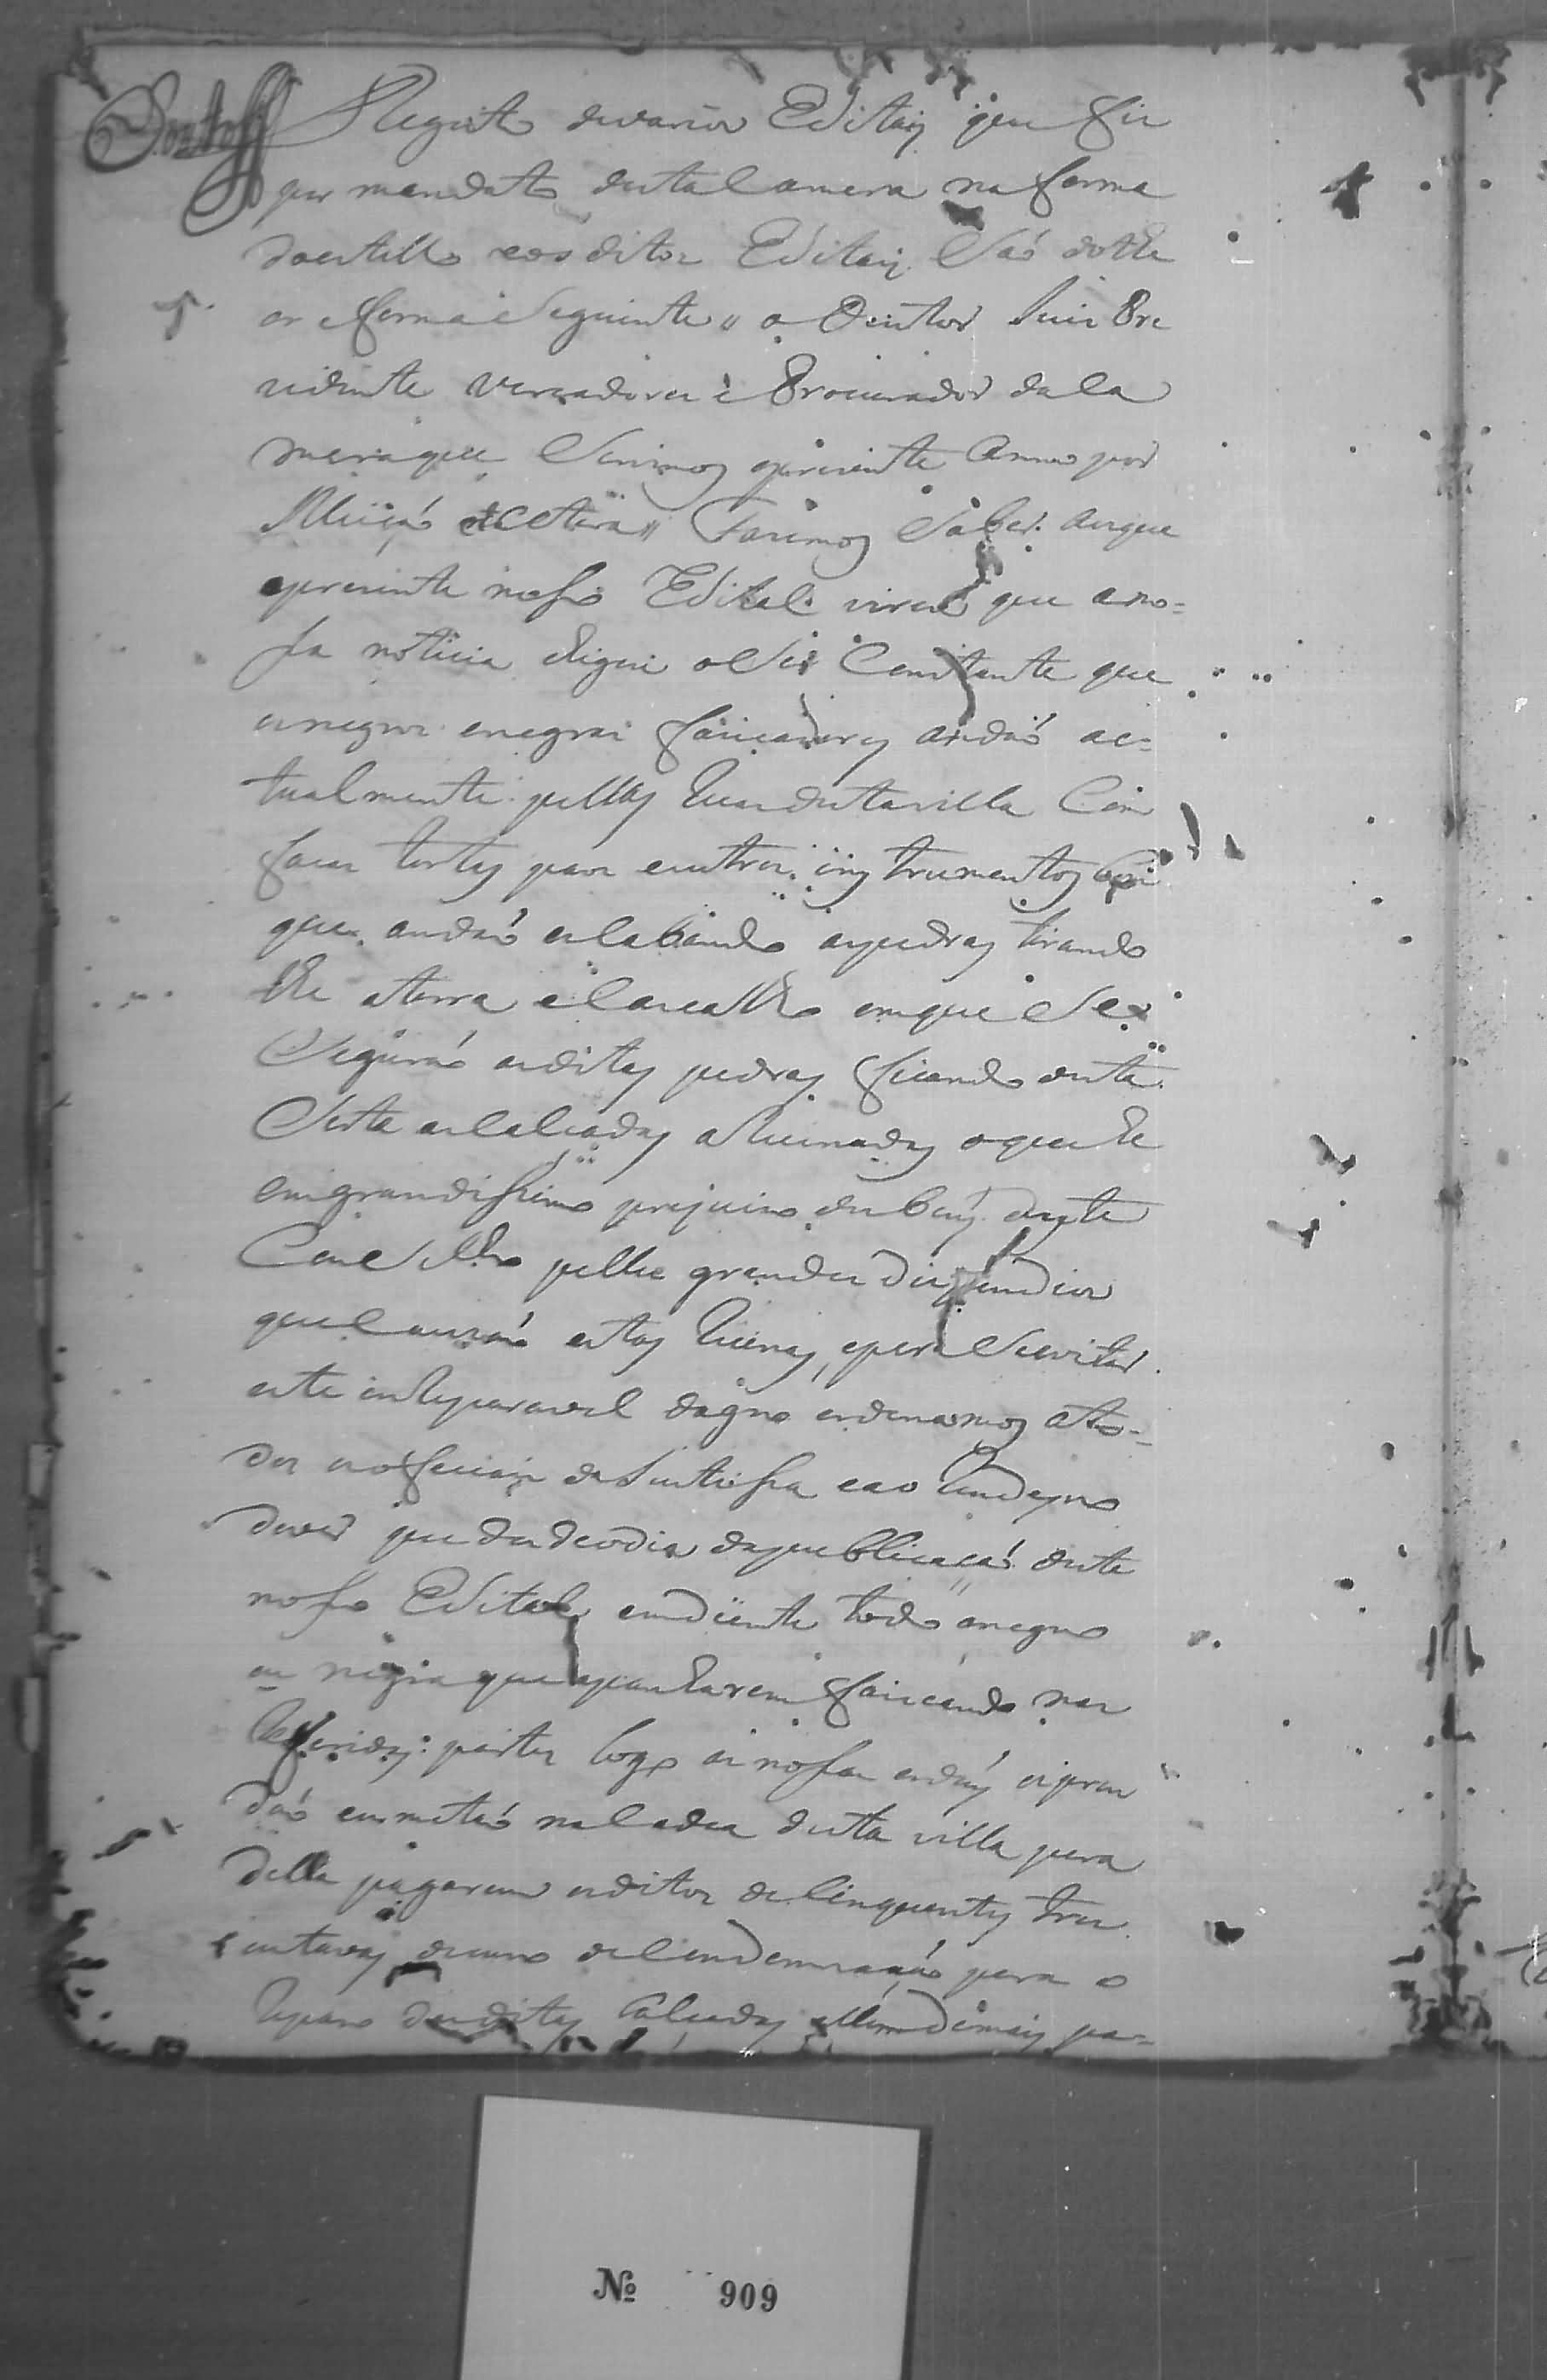 Registo devarios Editaiz que fis
por mandato destaCamera na forma
doestillo eos ditos Editaiz Saó dothe
or eforma Seguinte" o Doutor Juis Pre
zidente vereadores e Procurador daCa
meraque Servimos opresente Anno por
Elleiçaó etCetera" Fazemos Saber aosque
opresente nosso Edital virem que ano=
ssa noticia chegou oSer Constante que
osnegros enegras faiscadores andaó ac=
tualmente pellas Ruas destavilla Com
que andaó esCabando aspedras tirando
lhe aterra eCascalho emque Se
Seguraó asditas pedras ficando desta
Sorte asCalçadas aRuinadas oque he
emgrandissimo prejuizo dos bens deste
ConcSelho pellos grandes dispendios
queCauzaó estas Ruinas, epera Seevitar
este inReparavel dagno ordenamos ato=
dos osofficiais deJustissa eao Rendeyro
dover que desdeodia dapublicaçaó deste
nosso Edital emdiente todo onegro
ou negra que apanharem faiscando nas
Referidas partes logo anossa ordem opren
daó eometaó naCadea desta villa pera
della pagarem osditos delinquentes tres
outavas deouro deCondemnaçaó pera o
Reparo dasditas Calçadas ellem dimais pa=
Nº 909